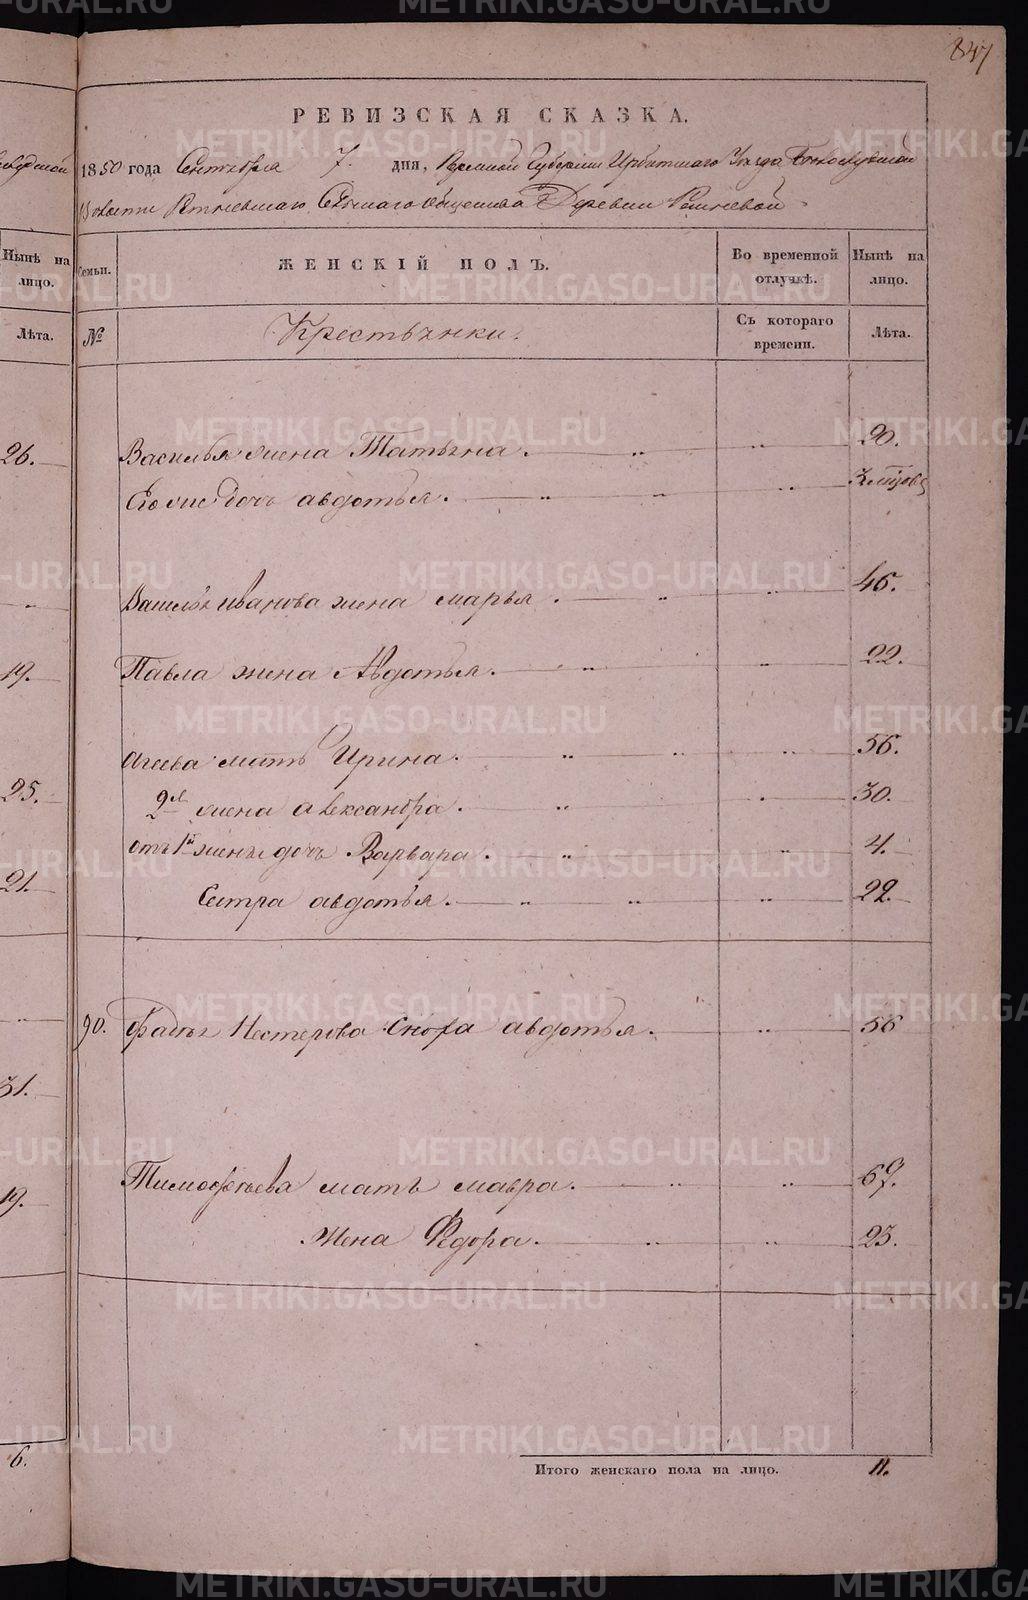 847
РЕВИЗСКАЯ СКАЗКА.
1850 года Сентября 7. дня, Пермской Губернии Ирбитскаго Уезда
Волости Сельскаго Общества Деревни
Нынѣ на лицо.
Семьи.
ЖЕНСКІЙ ПОЛЪ.
Во временной отлучкѣ.
Нынѣ на лицо.
Лѣта.
№
Крестьянки.
Съ котораго времени.
Лѣта.
26.
Василья жена Татьяна. 20.
Его же дочь авдотья. 3 месяцов
Василья иванова жена марья. 45.
19.
Павла жена Авдотья. 22.
Агеева мать Ирина. 56.
25.
2я жена александра. 30.
отъ 1й жены дочь Варвара. 4.
21.
Сестра авдотья. 22.
90. Фадея Нестерова Сноха авдотья. 56
31.
Тимофеева мать мавра. 67.
19.
Жена Федора. 23.
6.
Итого женскаго пола на лицо. 11.
METRIKI.GASO-URAL.RU